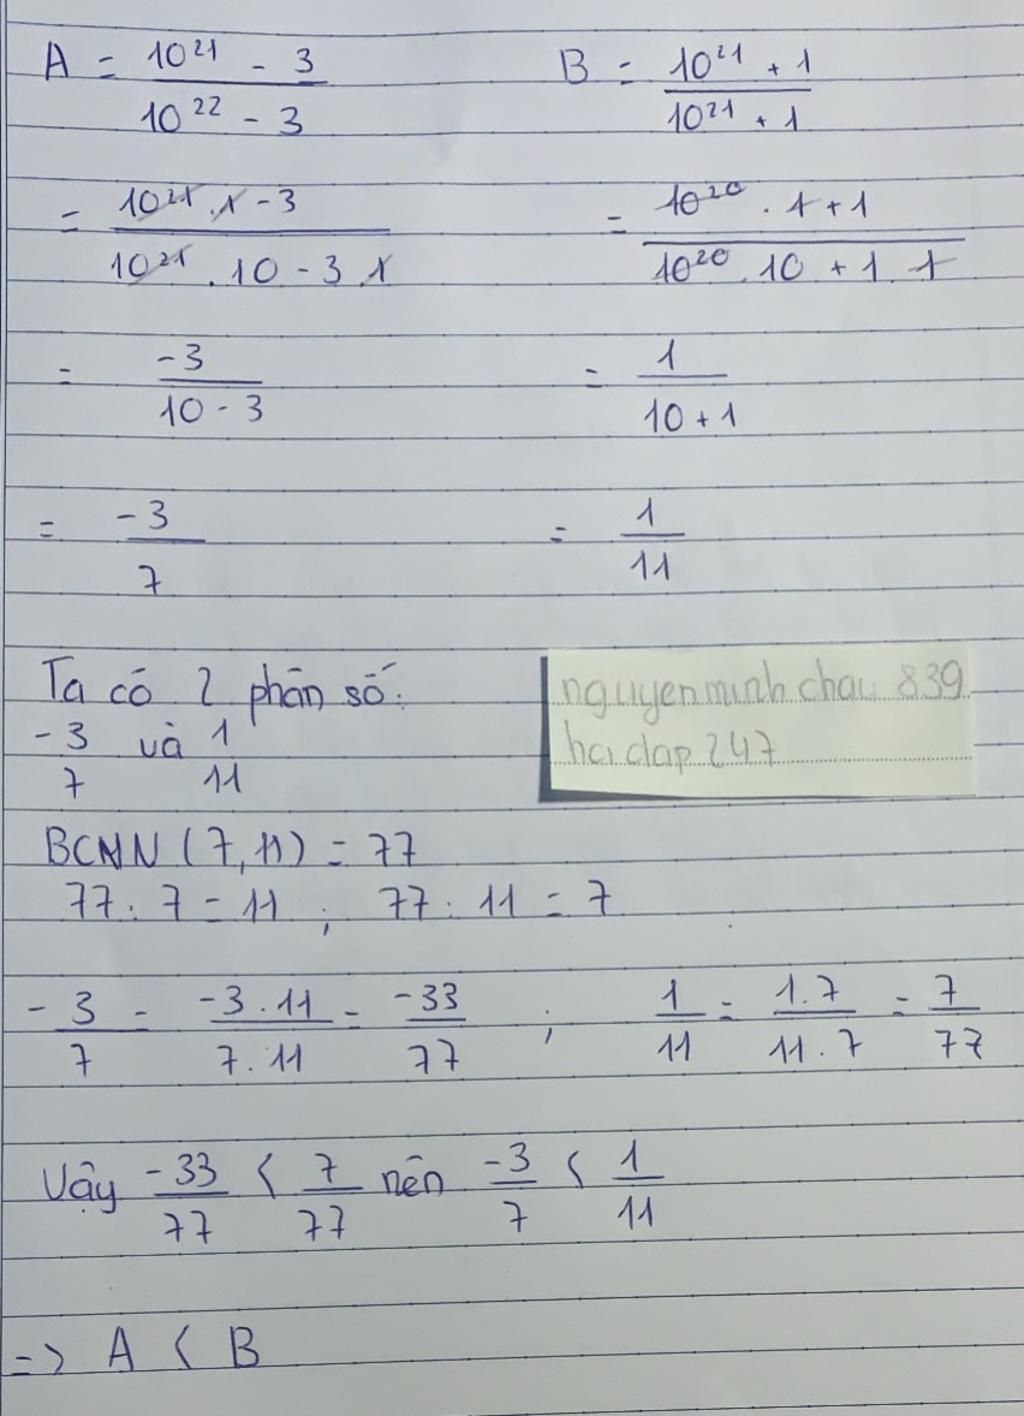 A = \frac{10^{21} - 3}{10^{22} - 3} B = \frac{10^{21} + 1}{10^{21} + 1}
= \frac{10^{21} . 1 - 3}{10^{21} . 10 - 3 1} = \frac{10^{20} . 1 + 1}{10^{20} . 10 + 1 . 1}
= \frac{-3}{10 - 3} = \frac{1}{10 + 1}
= \frac{-3}{7} = \frac{1}{11}
Ta có 2 phân số:
\frac{-3}{7} và \frac{1}{11}
nguyenminhchau 839
hoidap247
BCNN (7, 11) = 77
77 : 7 = 11 ; 77 : 11 = 7
\frac{-3}{7} = \frac{-3 . 11}{7 . 11} = \frac{-33}{77} ; \frac{1}{11} = \frac{1 . 7}{11 . 7} = \frac{7}{77}
Vậy \frac{-33}{77} < \frac{7}{77} nên \frac{-3}{7} < \frac{1}{11}
=> A < B